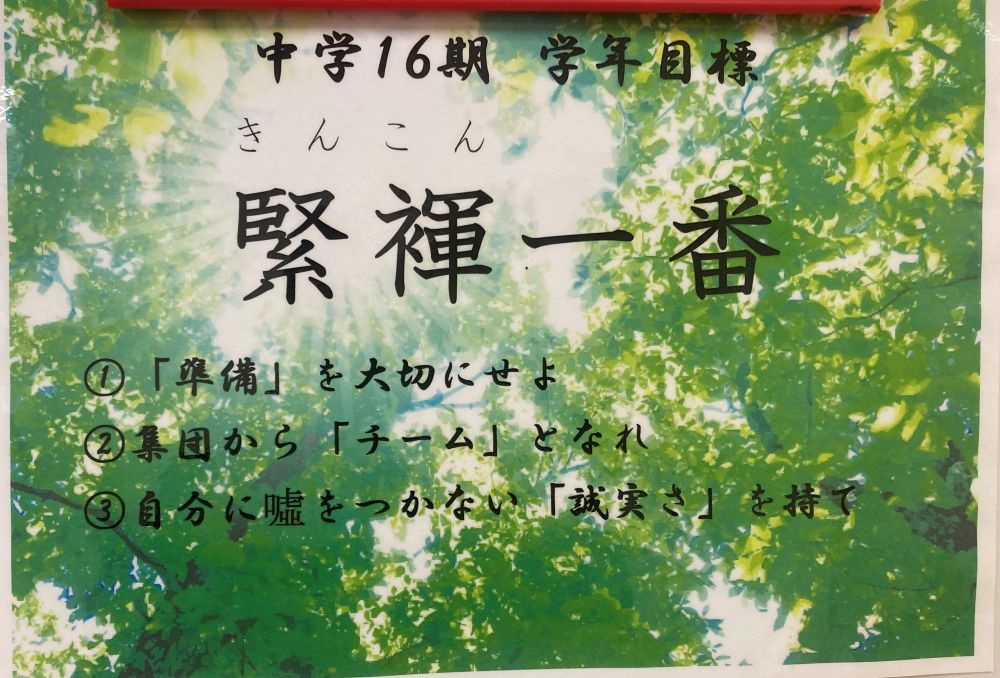 中学16期 学年目標
きんこん
緊褌一番
①「準備」を大切にせよ
②集団から「チーム」となれ
③自分に嘘をつかない「誠実さ」を持て